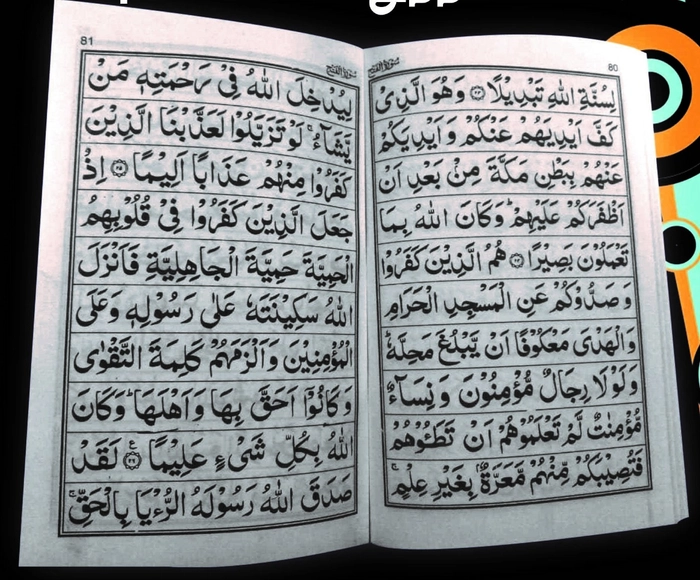 80
سورۃ الفتح
لِسُنَّةِ اللّٰهِ تَبْدِيْلًا ۝۲۳ وَهُوَ الَّذِىْ
كَفَّ اَيْدِيَهُمْ عَنْكُمْ وَ اَيْدِيَكُمْ
عَنْهُمْ بِبَطْنِ مَكَّةَ مِنْۢ بَعْدِ اَنْ
اَظْفَرَكُمْ عَلَيْهِمْ ؕ وَكَانَ اللّٰهُ بِمَا
تَعْمَلُوْنَ بَصِيْرًا ۝۲۴ هُمُ الَّذِيْنَ كَفَرُوْا
وَ صَدُّوْكُمْ عَنِ الْمَسْجِدِ الْحَرَامِ
وَ الْهَدْىَ مَعْكُوْفًا اَنْ يَّبْلُغَ مَحِلَّهٗ ؕ
وَ لَوْ لَا رِجَالٌ مُّؤْمِنُوْنَ وَ نِسَآءٌ
مُّؤْمِنٰتٌ لَّمْ تَعْلَمُوْهُمْ اَنْ تَطَـُٔوْهُمْ
فَتُصِيْبَكُمْ مِّنْهُمْ مَّعَرَّةٌۢ بِغَيْرِ عِلْمٍ ۚ
81
سورۃ الفتح
لِيُدْخِلَ اللّٰهُ فِىْ رَحْمَتِهٖ مَنْ
يَّشَآءُ ۚ لَوْ تَزَيَّلُوْا لَعَذَّبْنَا الَّذِيْنَ
كَفَرُوْا مِنْهُمْ عَذَابًا اَلِيْمًا ۝۲۵ اِذْ
جَعَلَ الَّذِيْنَ كَفَرُوْا فِىْ قُلُوْبِهِمُ
الْحَمِيَّةَ حَمِيَّةَ الْجَاهِلِيَّةِ فَاَنْزَلَ
اللّٰهُ سَكِيْنَتَهٗ عَلٰى رَسُوْلِهٖ وَعَلَى
الْمُؤْمِنِيْنَ وَ اَلْزَمَهُمْ كَلِمَةَ التَّقْوٰى
وَ كَانُوْۤا اَحَقَّ بِهَا وَ اَهْلَهَا ؕ وَكَانَ
اللّٰهُ بِكُلِّ شَىْءٍ عَلِيْمًا ۝۲۶ لَقَدْ
صَدَقَ اللّٰهُ رَسُوْلَهُ الرُّءْيَا بِالْحَقِّ ۚ